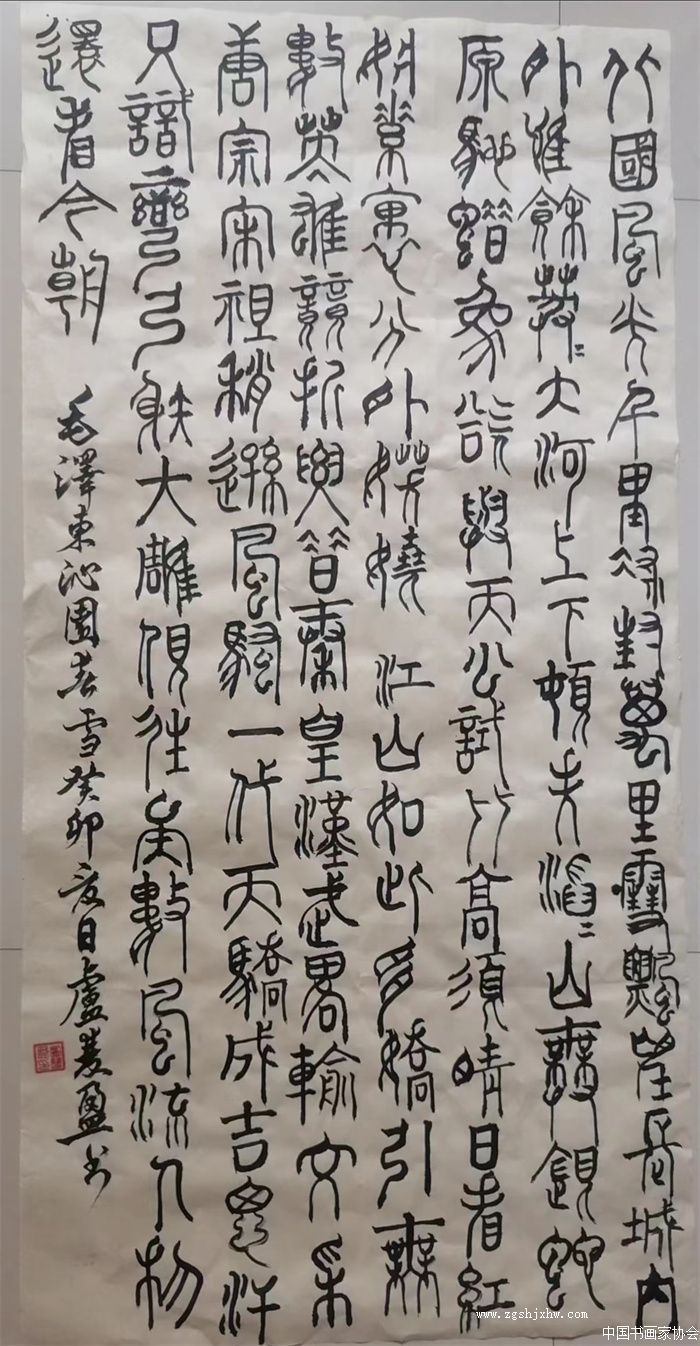 北國風光千里冰封萬里雪飄望長城內
外惟餘莽〻大河上下頓失滔〻山舞銀蛇
原馳蠟象欲與天公試比高須晴日看紅
妝素裹分外妖嬈 江山如此多嬌引無
數英雄競折腰昔秦皇漢武略輸文采
唐宗宋祖稍遜風騷一代天驕成吉思汗
只識彎弓射大雕俱往矣數風流人物
還看今朝
毛澤東沁園春雪癸卯夏日盧盈書
www.zgshjxhw.com
中国书画家协会